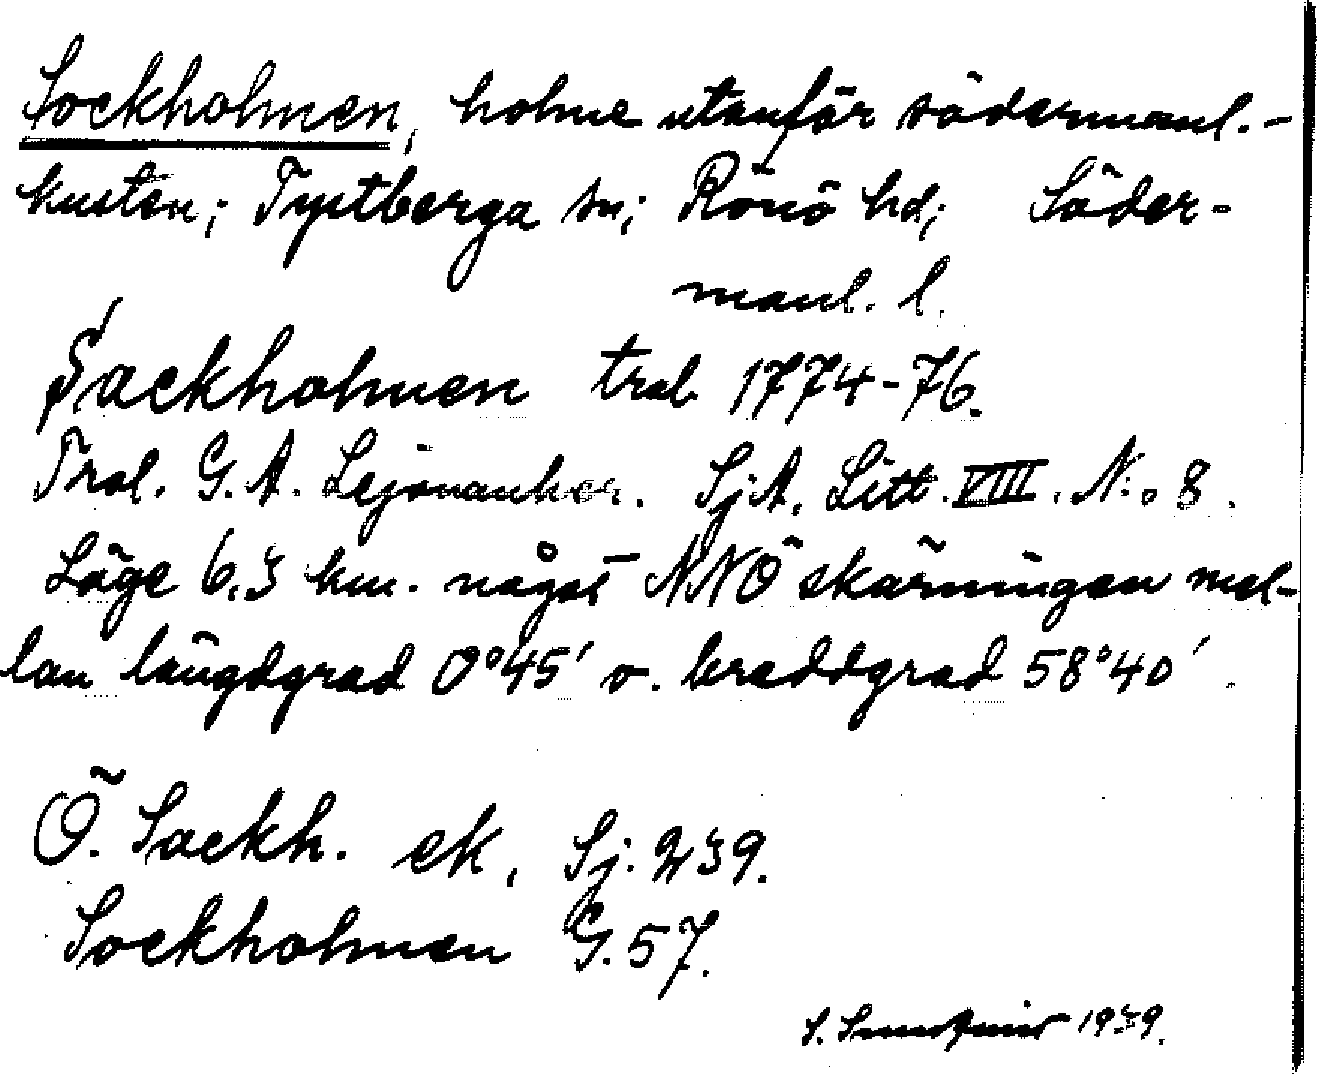 Sockholmen, holme utanför södermanl.-
kusten; Tystberga sn; Rönö hd; Söder-
manl. l.
Sackholmen trol. 1774-76.
Trol. G. A. Lejonanker. Sj.A. Litt. VIII. N:o 8.
Läge 6.3 km. något NNÖ skärningen mel-
lan längdgrad 0°45' o. breddgrad 58°40'.
Ö. Sackh. ek, Sj. 239.
Sockholmen G. 57.
S. 1939.